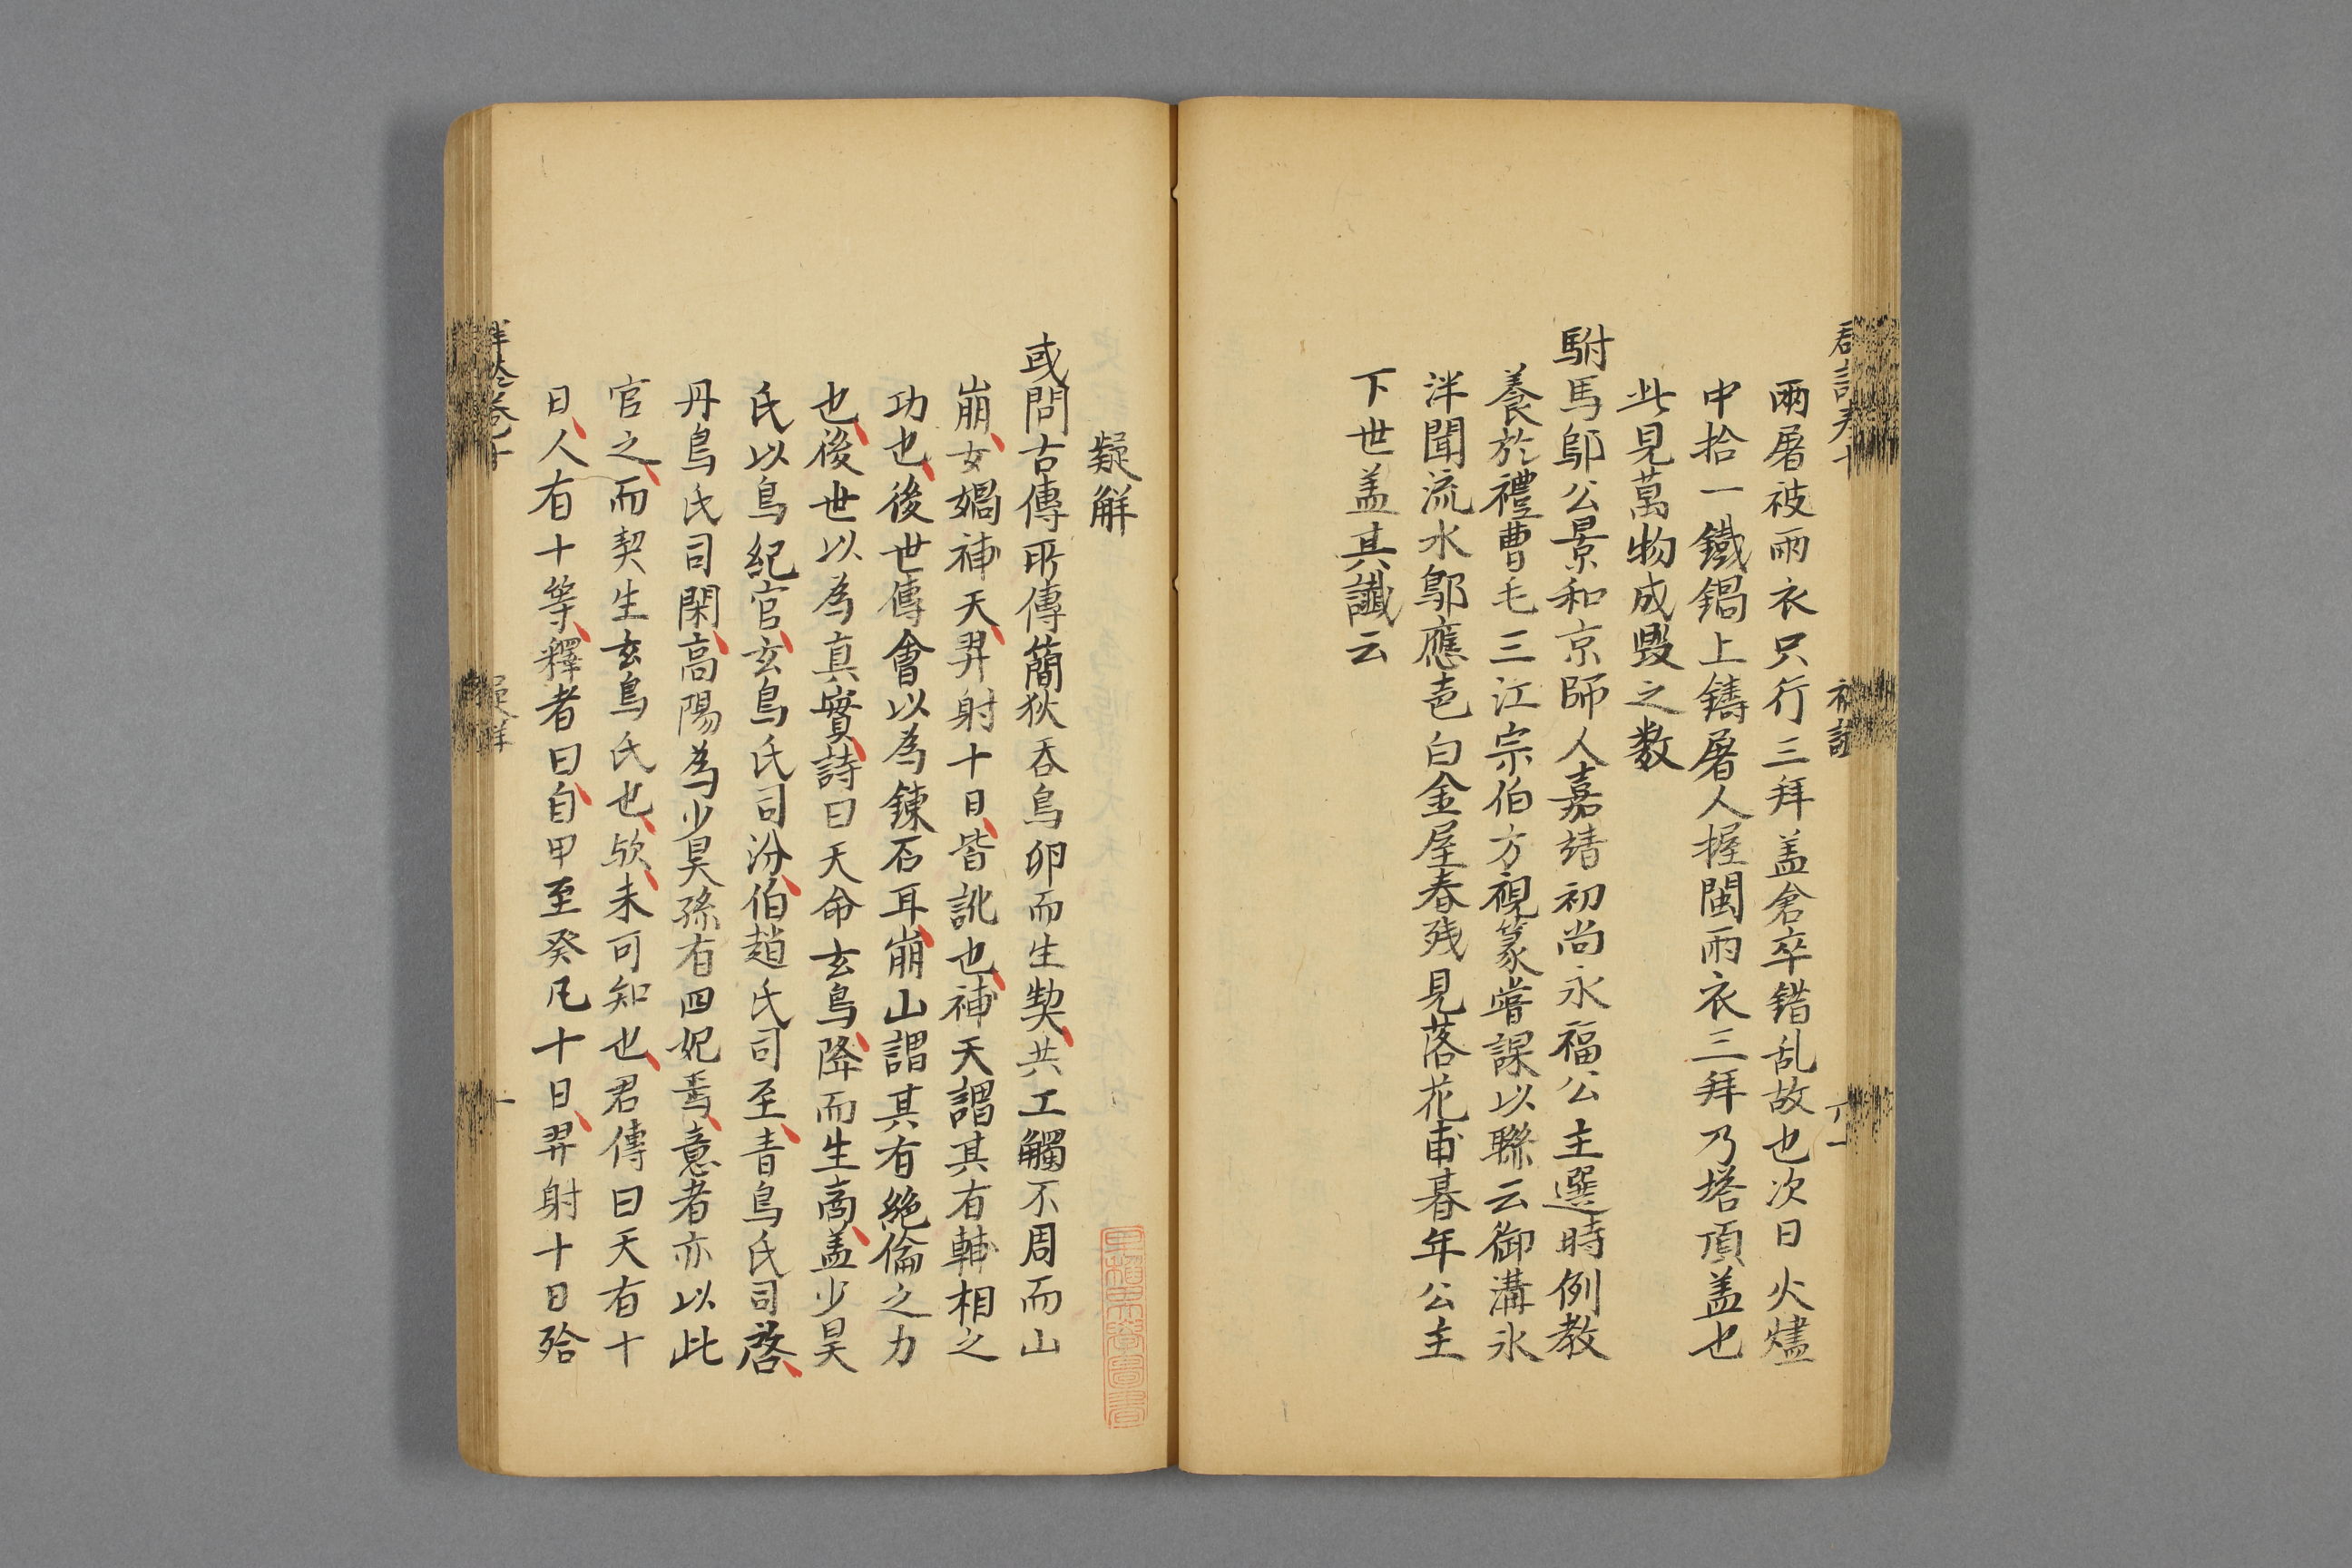 雨屠被雨衣只行三拜盖倉卒錯乱故也次日火燼
中拾一鐵鍋上鑄屠人握閩雨衣三拜乃塔頂盖也
此見萬物成毀之數
駙馬鄔公景和京師人嘉靖初尚永福公主選時例教
養於禮曹毛三江宗伯方視篆嘗課以聯云御溝氷
泮聞流水鄔應芑曰金屋春残見落花甫暮年公主
下世盖其讖云
疑解
或問古傳所傳簡狄吞鳥卵而生契共工觸不周而山
崩女媧補天羿射十日皆訛也補天謂其有輔相之
功也後世傅會以為鍊石耳崩山謂其有絶倫之力
也後世以為真實詩曰天命玄鳥降而生商盖少昊
氏以鳥紀官玄鳥氏司汾伯趙氏司至青鳥氏司啓
丹鳥氏司閑高陽為少昊孫有四妃焉意者亦以此
官之而契生玄鳥氏也欤未可知也君傳曰天有十
日人有十等釋者曰自甲至癸凡十日羿射十日殆